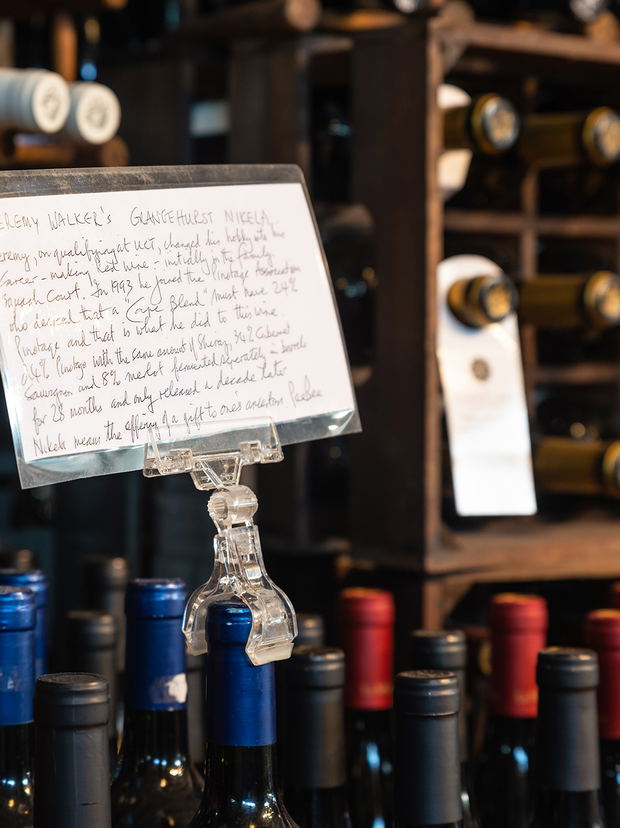 EREMY WALKER'S GRANGEHURST NIKELA
eremy, on qualifying at UCT, changed his hobby into his
Career - making red wine - initially in the family
Squash Court. In 1993 he joined the Pinotage Association
who decided that a 'Cape Blend' must have 24%
Pinotage and that is what he did to this wine.
24% Pinotage with the same amount of Shiraz, 34% Cabernet
Sauvignon and 8% merlot fermented separately in barrels
for 28 months and only released a decade later
Nikela means the offering of a gift to one's ancestors PeeBee